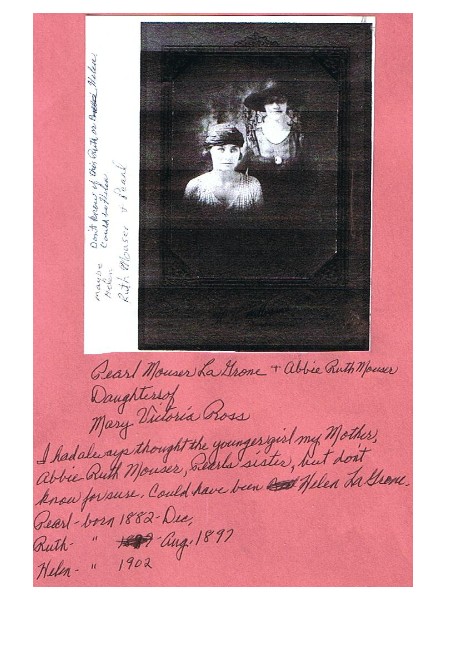 Don't know if this Ruth or Helen.
maybe Could be Helen
Helen
Ruth Mouser + Pearl
Pearl Mouser La Grone + Abbie Ruth Mouser
Daughters of
Mary Victoria Ross
I had always thought the younger girl my Mother,
Abbie Ruth Mouser, Pearls sister, but don't
know for sure. Could have been Helen La Grone.
Pearl - born 1882 - Dec,
Ruth - " Aug, 1897
Helen - " 1902